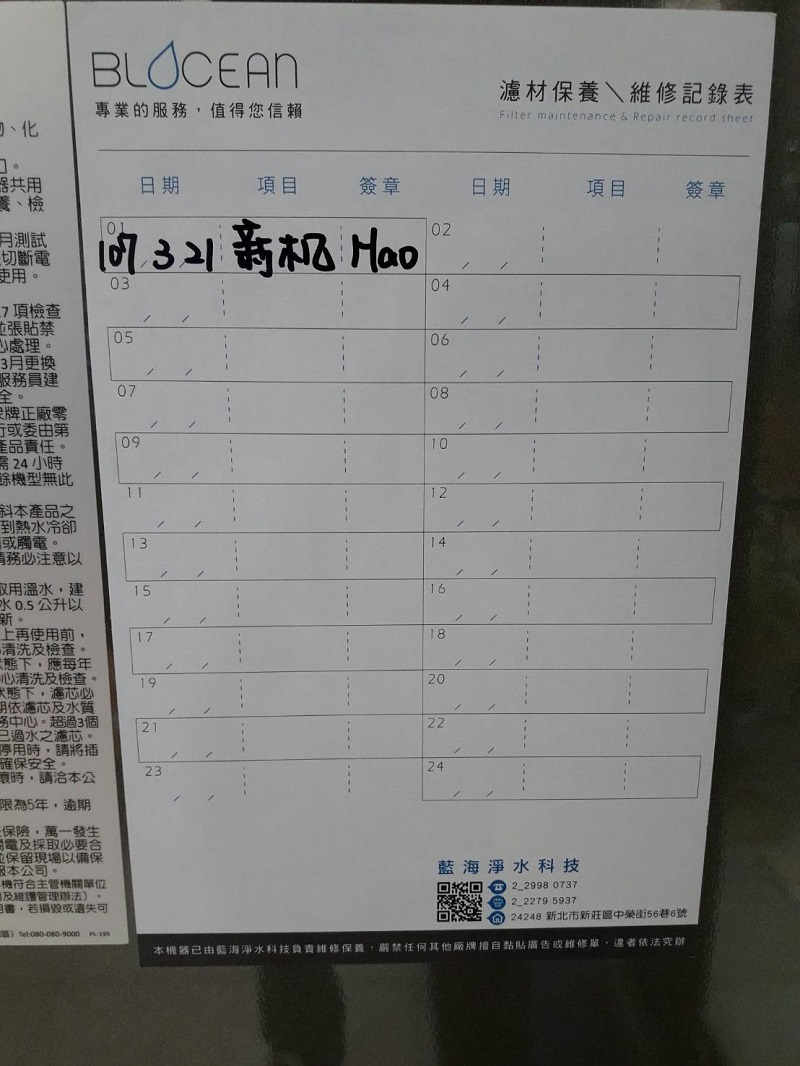 勿、化
口。
器共用
養、檢
月測試
切斷電
使用。
7 項檢查
並張貼禁
心處理。
3月更換
服務員建
全。
牌正廠零
行或委由第
產品責任。
需 24 小時
餘機型無此
斜本產品之
到熱水冷卻
或觸電。
請務必注意以
取用溫水，建
水 0.5 公升以
新。
上再使用前，
清洗及檢查。
狀態下，應每年
心清洗及檢查。
狀態下，濾芯必
期依濾芯及水質
務中心。超過3個
已過水之濾芯。
停用時，請將插
確保安全。
壞時，請洽本公
限為5年，逾期
保險，萬一發生
電及採取必要合
並保留現場以備保
報本公司。
機符合主管機關單位
及維護管理辦法〕。
書，若損毀或遺失可
區）Tel:080-080-9000 PL-195
BLOCEAN
專業的服務，值得您信賴
濾材保養＼維修記錄表
Filter maintenance & Repair record sheet
日期 項目 簽章 日期 項目 簽章
01 107 3 21 新机 Hao 02 / /
03 / / 04 / /
05 / / 06 / /
07 / / 08 / /
09 / / 10 / /
11 / / 12 / /
13 / / 14 / /
15 / / 16 / /
17 / / 18 / /
19 / / 20 / /
21 / / 22 / /
23 / / 24 / /
藍海淨水科技
2_2998 0737
2_2279 5937
24248 新北市新莊區中榮街56巷6號
本機器已由藍海淨水科技負責維修保養，嚴禁任何其他廠牌擅自黏貼廣告或維修單，違者依法究辦